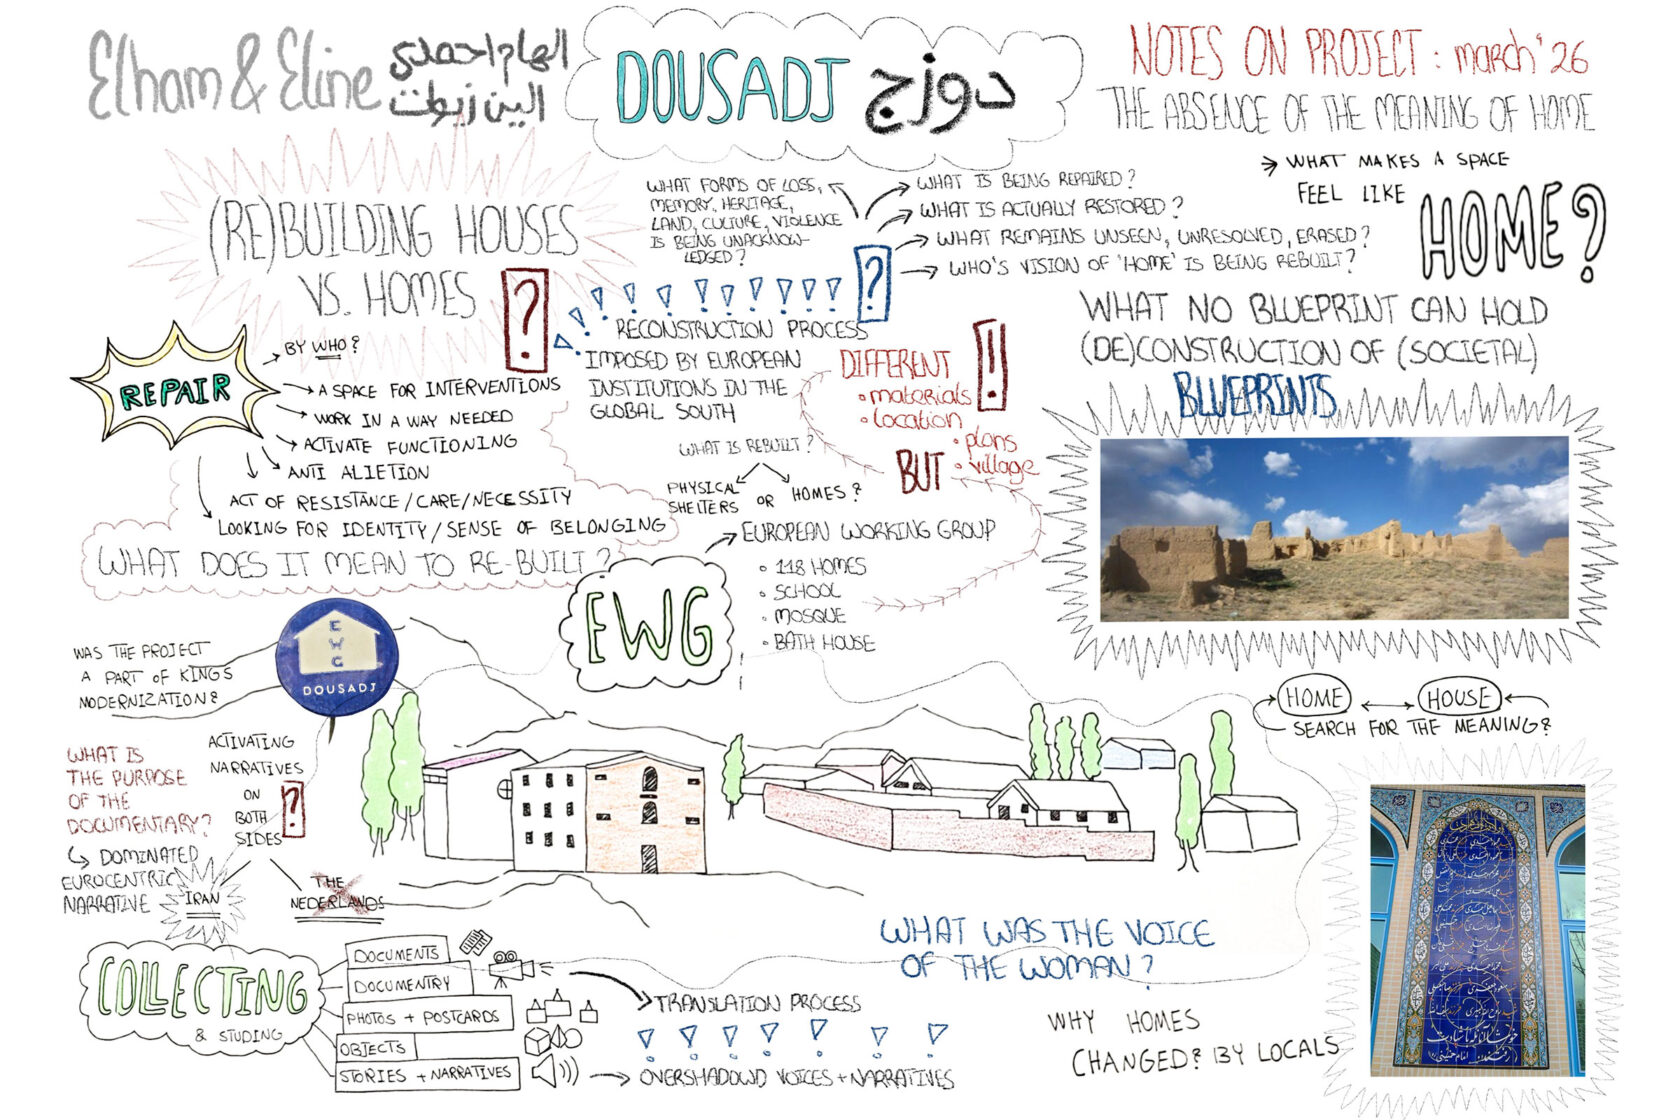 Elham & Eline
الهام احمدی
الین زیوت
DOUSADJ دوزج
NOTES ON PROJECT : march '26
THE ABSENCE OF THE MEANING OF HOME
→ WHAT MAKES A SPACE
FEEL LIKE
HOME?
(RE)BUILDING HOUSES
VS. HOMES
?
WHAT FORMS OF LOSS,
MEMORY, HERITAGE,
LAND, CULTURE, VIOLENCE
IS BEING UNACKNOW-
LEDGED?
WHAT IS BEING REPAIRED?
WHAT IS ACTUALLY RESTORED?
WHAT REMAINS UNSEEN, UNRESOLVED, ERASED?
WHO'S VISION OF 'HOME' IS BEING REBUILT?
?
! ! ! ! ! ! ! ! ! !
RECONSTRUCTION PROCESS
IMPOSED BY EUROPEAN
INSTITUTIONS IN THE
GLOBAL SOUTH
WHAT IS REBUILT?
PHYSICAL
SHELTERS
OR
HOMES?
DIFFERENT
• materials
• location
• plans
• village
!
BUT
WHAT NO BLUEPRINT CAN HOLD
(DE)CONSTRUCTION OF (SOCIETAL)
BLUEPRINTS
REPAIR
BY WHO?
A SPACE FOR INTERVENTIONS
WORK IN A WAY NEEDED
ACTIVATE FUNCTIONING
ANTI ALIETION
ACT OF RESISTANCE/CARE/NECESSITY
LOOKING FOR IDENTITY/SENSE OF BELONGING
WHAT DOES IT MEAN TO RE-BUILT?
EWG
EUROPEAN WORKING GROUP
• 118 HOMES
• SCHOOL
• MOSQUE
• BATH HOUSE
WAS THE PROJECT
A PART OF KINGS
MODERNIZATION?
E
W
G
DOUSADJ
HOME
HOUSE
SEARCH FOR THE MEANING?
WHAT IS
THE PURPOSE
OF THE
DOCUMENTARY?
DOMINATED
EUROCENTRIC
NARRATIVE
ACTIVATING
NARRATIVES
ON
BOTH
SIDES
?
IRAN
THE
NEDERLANDS
COLLECTING
& STUDING
DOCUMENTS
DOCUMENTRY
PHOTOS + POSTCARDS
OBJECTS
STORIES + NARRATIVES
TRANSLATION PROCESS
! ! ! ! ! ! !
OVERSHADOWD VOICES + NARRATIVES
WHAT WAS THE VOICE
OF THE WOMAN?
WHY HOMES
CHANGED? BY LOCALS